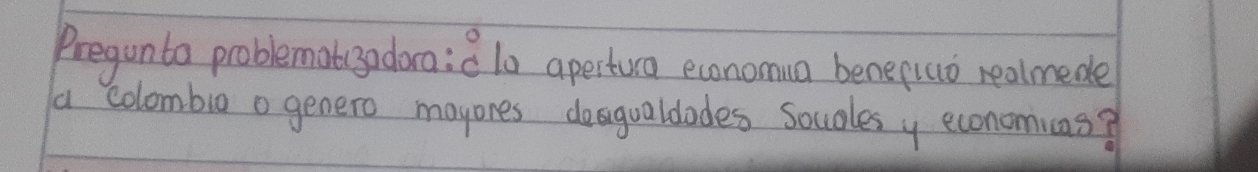 Pregunta problematizadora: ¿ la apertura economica benefició realmente
a Colombia o genero mayores desigualdades Sociales y economicas?